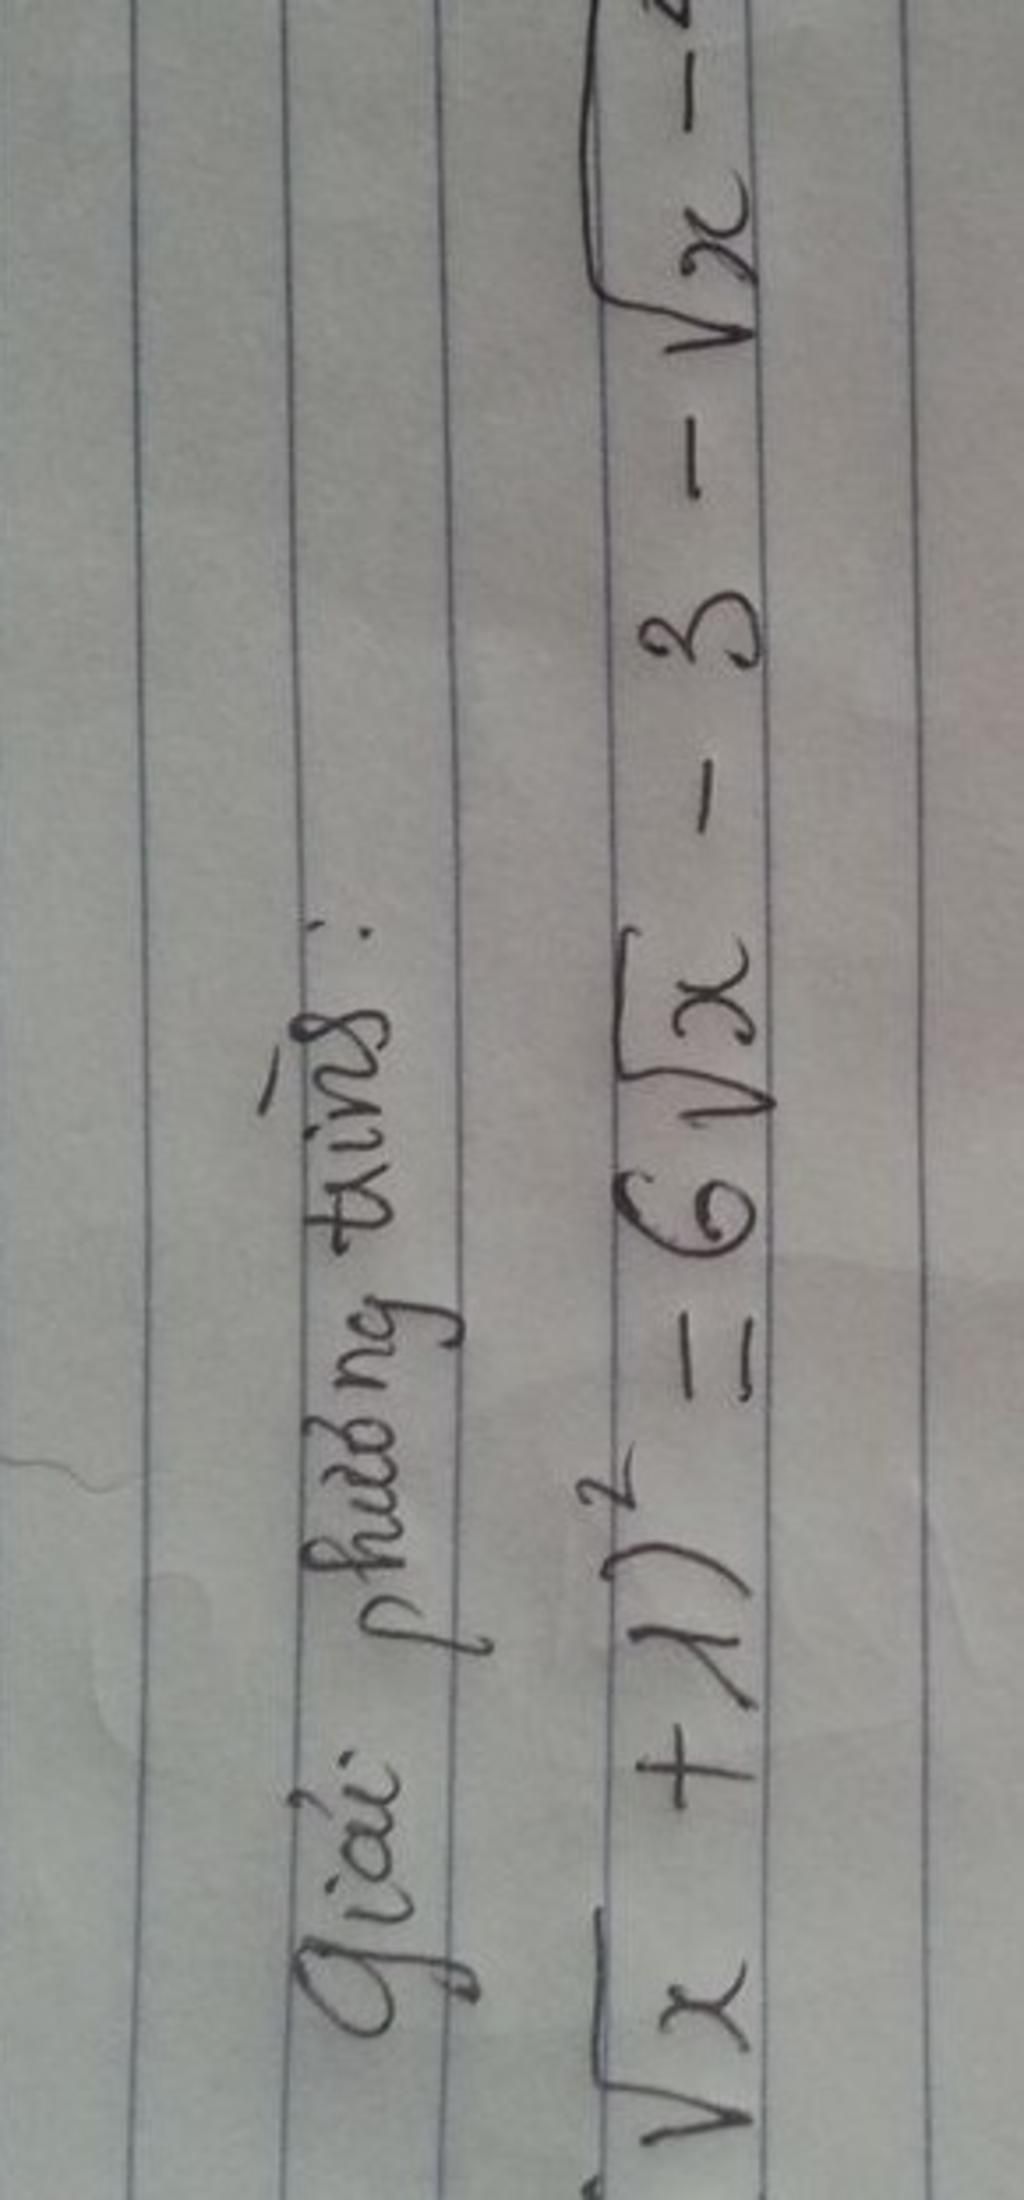 Giải phương trình:
√x + 1)² = 6√x - 3 - √x -